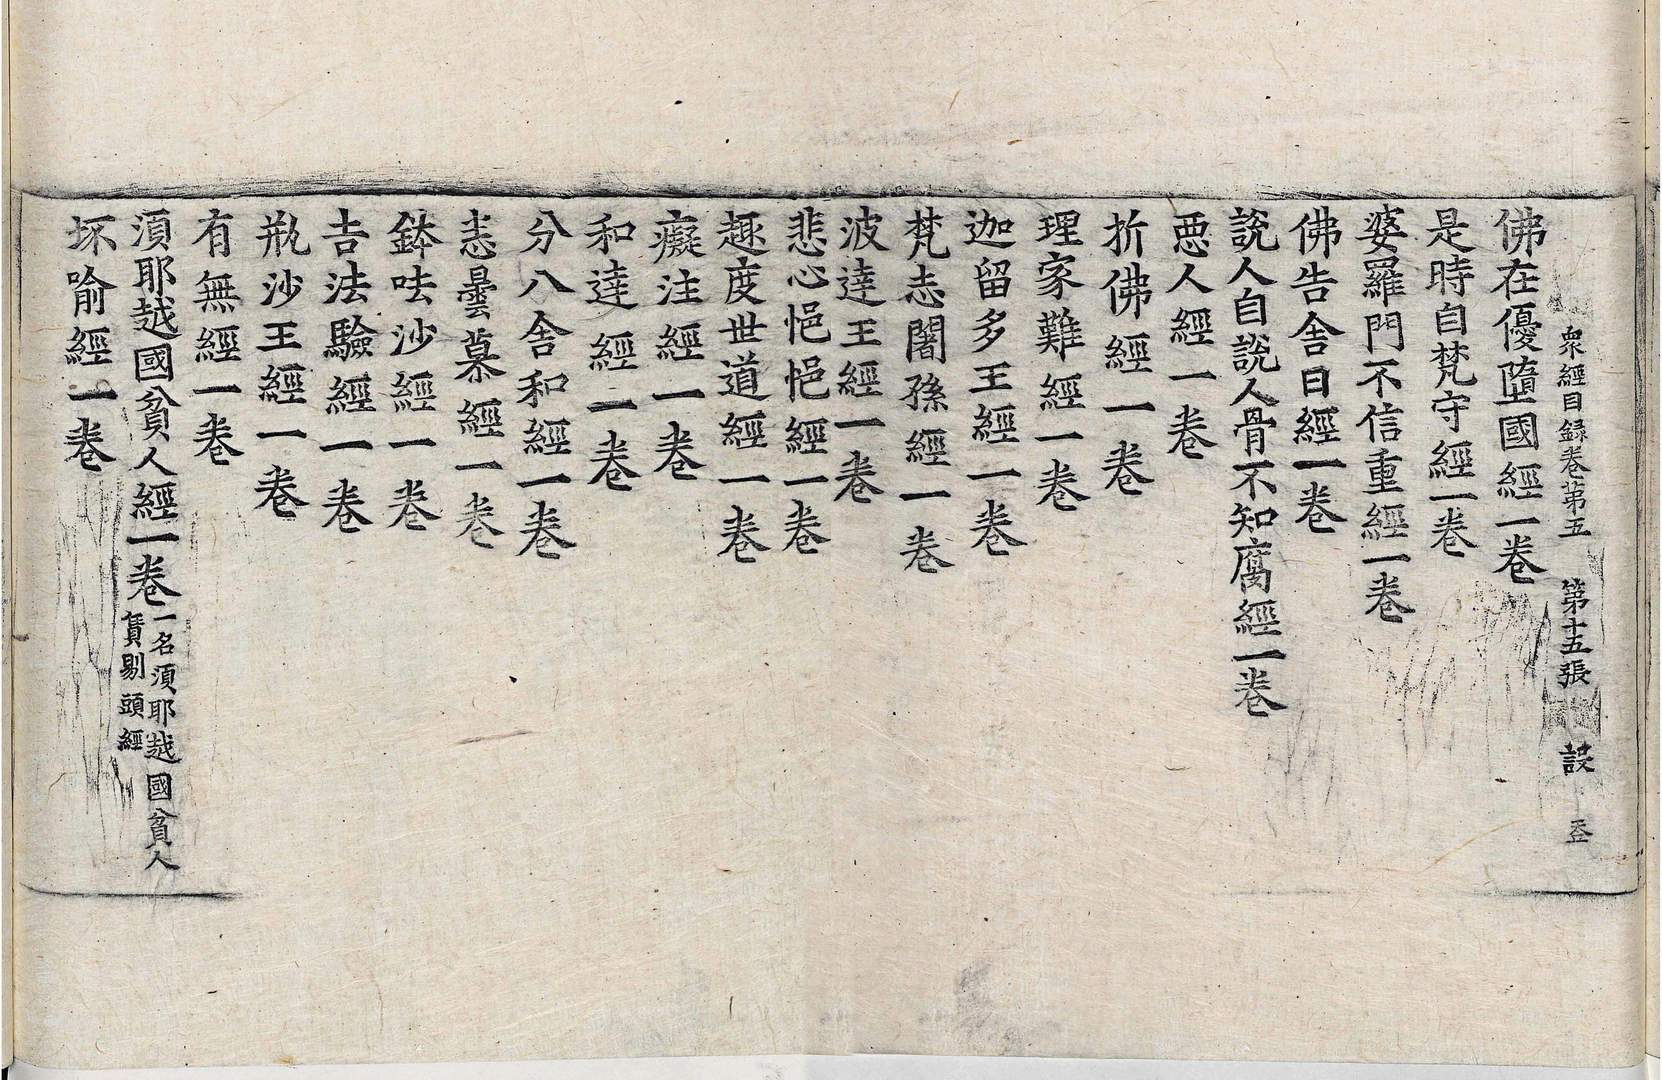 衆經目録卷第五 第十五張 設
佛在優墮國經一卷
是時自梵守經一卷
婆羅門不信重經一卷
佛告舍日經一卷
說人自說人骨不知腐經一卷
惡人經一卷
折佛經一卷
理家難經一卷
迦留多王經一卷
梵志闍孫經一卷
波達王經一卷
悲心悒悒經一卷
趣度世道經一卷
癡注經一卷
和達經一卷
分八舍和經一卷
恚曇慕經一卷
鉢呿沙經一卷
吉法驗經一卷
瓶沙王經一卷
有無經一卷
湏耶越國貧人經一卷
一名湏耶越國貧人
賃剔頭經
坏喻經一卷